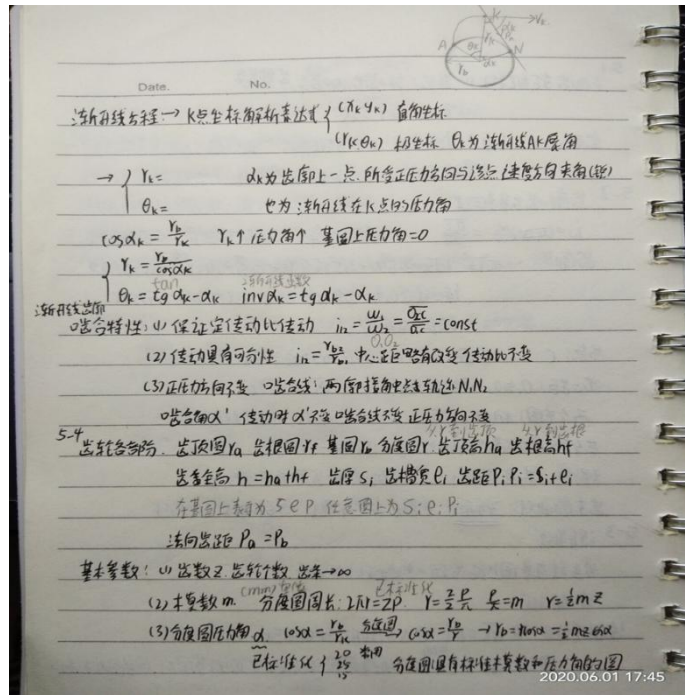 A K N Vk θk αk rb rk
Date. No.
渐开线方程 → K点坐标解析表达式 { (xk yk) 直角坐标
(rk θk) 极坐标 θk为渐开线AK展角
→ { rk= αk为齿廓上一点.所受正压力方向与该点速度方向夹角(锐)
θk= 也为渐开线在K点的压力角
cosαk = rb/rk rk↑ 压力角↑ 基圆上压力角=0
{ rk = rb/cosαk
tan 渐开线函数
θk = tgαk-αk invαk = tgαk-αk
渐开线齿廓
啮合特性: (1) 保证定传动比传动 i12 = ω1/ω2 = O2C/O1C = const
O1O2
(2) 传动具有可分性 i12 = rb2/rb1 中心距略有改变 传动比不变
(3) 正压力方向不变 啮合线: 两廓接触点轨迹N1N2
啮合角α' 传动时α'不变 啮合线不变 正压力方向不变
从r到齿顶 从r到齿根
5-4 齿轮各部分. 齿顶圆ra 齿根圆rf 基圆rb 分度圆r 齿顶高ha 齿根高hf
齿全高 h = ha+hf 齿厚si 齿槽宽ei 齿距pi pi=si+ei
在基圆上 s e p, 任意圆上为 si ei pi
法向齿距 Pa = Pb
基本参数: (1) 齿数z. 齿轮个数 齿条→∞
(mm) 已标准化
(2) 模数m. 分度圆周长: 2πr=zp. r=z/2 p/π p/π=m r=½mz
(3) 分度圆压力角α cosα = rb/rk 分度圆→ cosα = rb/r → rb=rcosα=½mzcosα
已标准化 { 20 常用 分度圆:具有标准模数和压力角的圆
25
15
2020.06.01 17:45